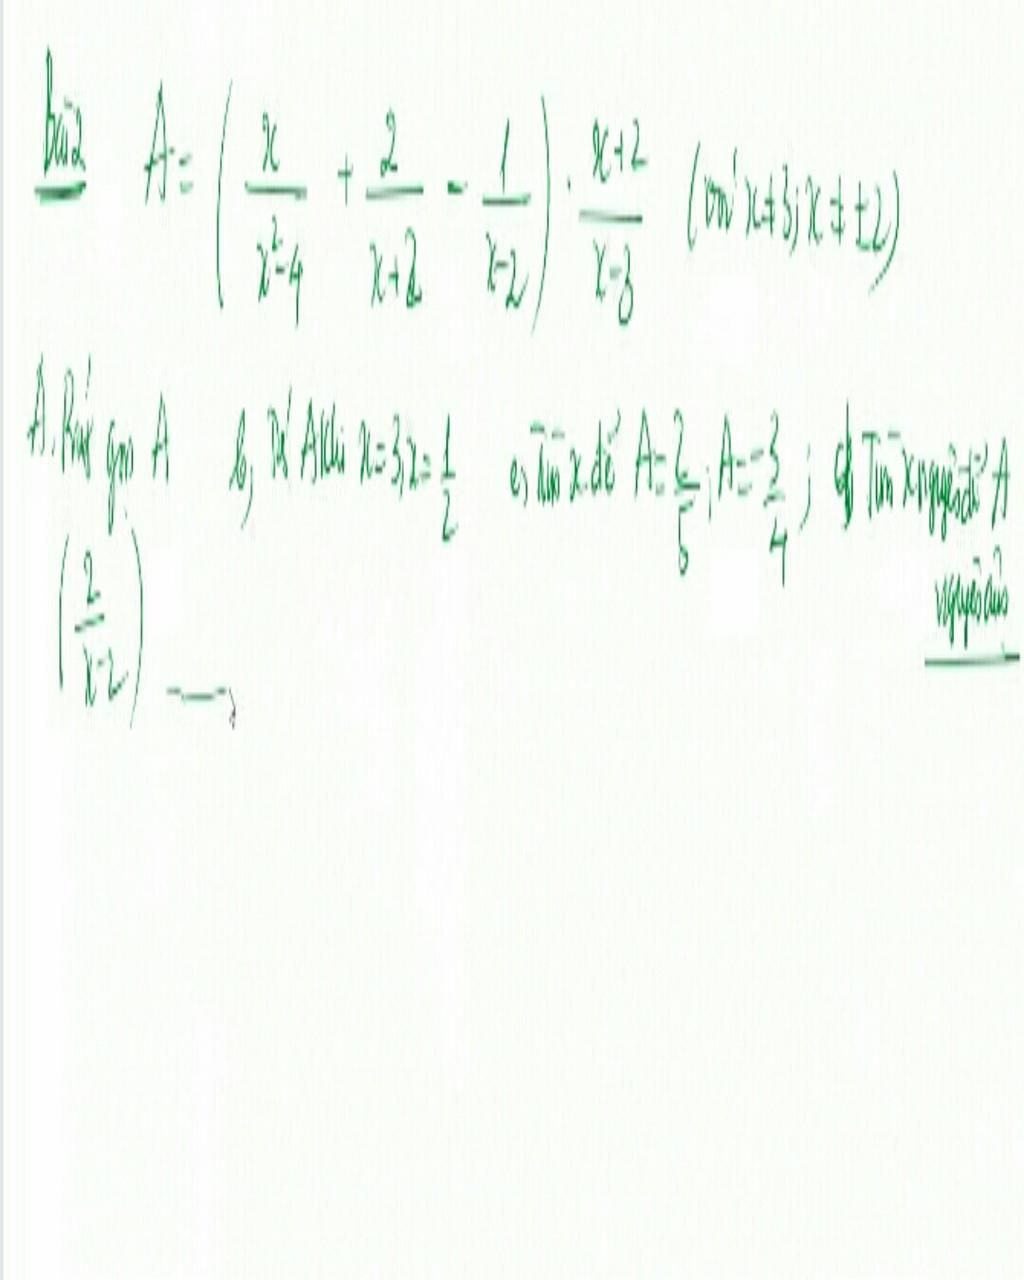 bài 2 A = ( x/(x²-4) + 2/(x+2) - 1/(x-2) ) . (x+2)/(x-3) (với x ≠ 3; x ≠ ±2)
A. Rút gọn A b, Tí A khi x = 3, x = 1/2 c, Tìm x để A = 2/5; A = -3/4; d) Tìm x nguyên để A
nguyên
( 2/(x-2) )